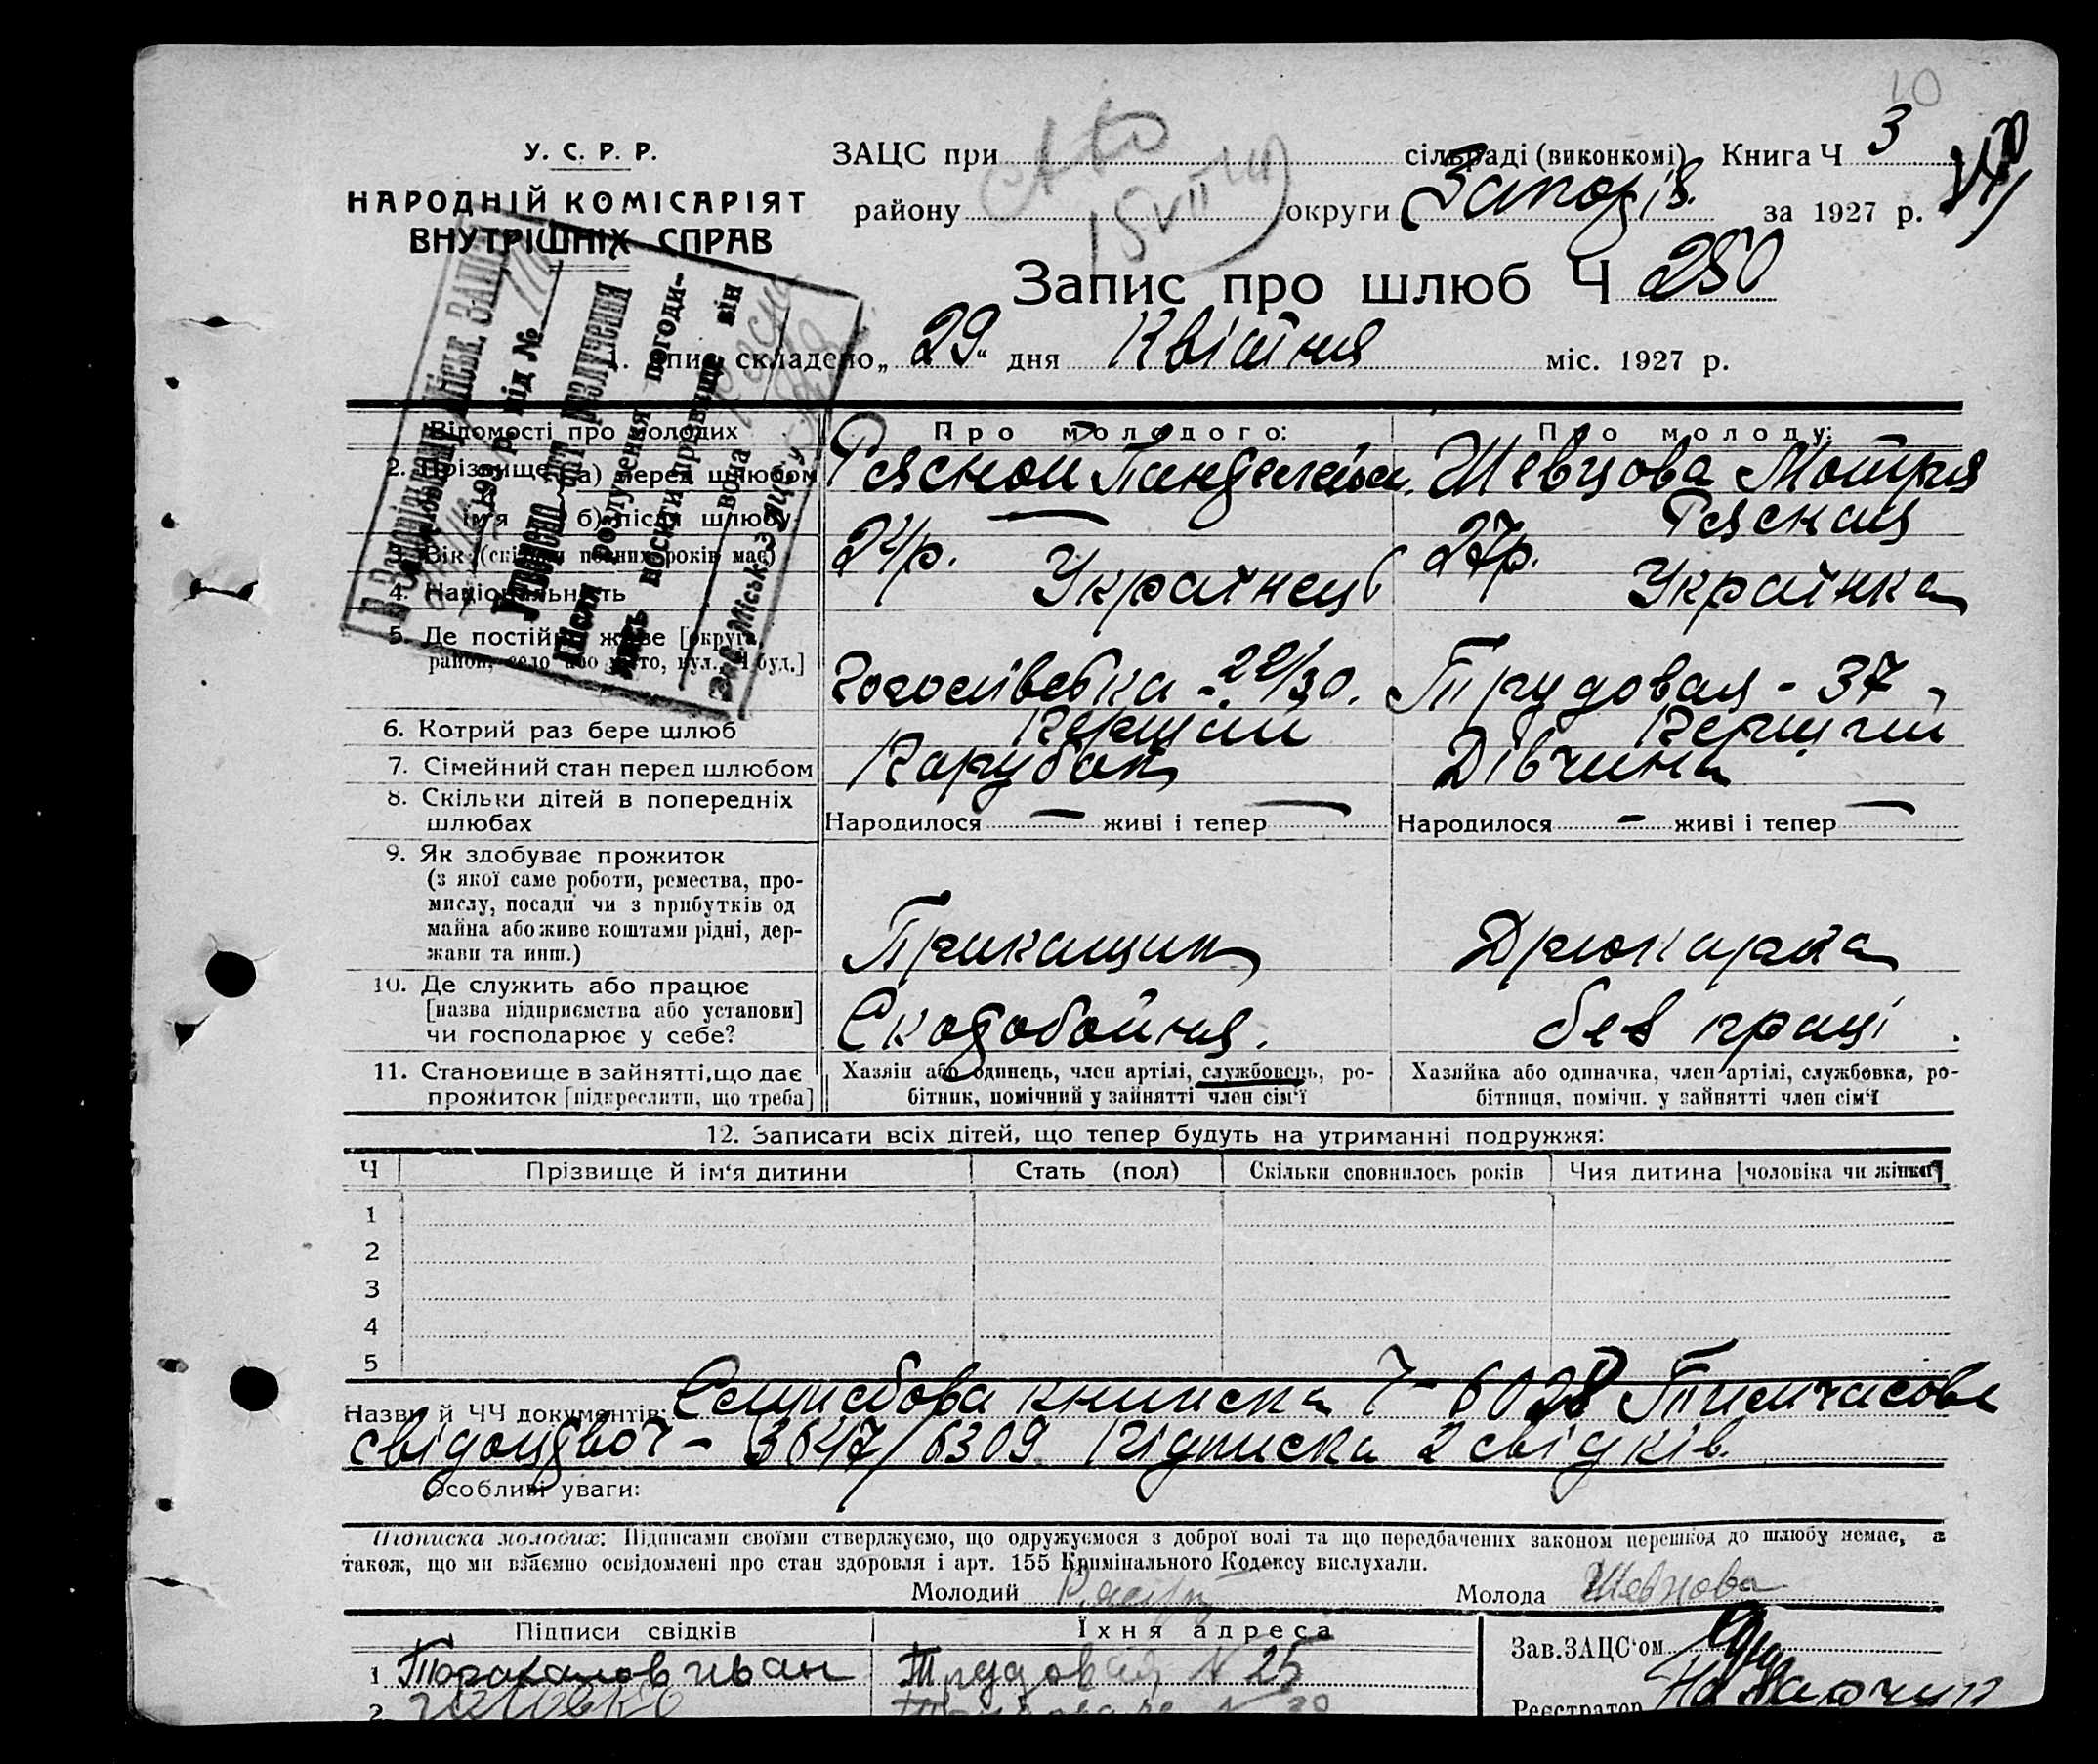 10
У. С. Р. Р.
НАРОДНІЙ КОМІСАРІЯТ
ВНУТРІШНІХ СПРАВ
ЗАЦС при сільраді (виконкомі) Книга Ч 3
району округи Запоріз. за 1927 р.
15 VII
Запис про шлюб Ч 250
пис складено „29“ дня Квітня міс. 1927 р.
під №
Утворено акт розлучення
Після розлучення погоди-
лись носити прізвище він
вона
Відомості про молодих Про молодого: Про молоду:
2. Прізвище а) перед шлюбом Рясной Панделеймон Шевцова Мотря
ім'я б) після шлюбу Рясная
3. Вік (скільки повних років має) 24р. 27р.
4. Національність Українець Українка
5. Де постійно живе [округа,
район, село або місто, вул., Ч буд.] Гоголівська - 22/30. Трудовая - 37
6. Котрий раз бере шлюб Перший Перший
7. Сімейний стан перед шлюбом Парубок Дівчина
8. Скільки дітей в попередніх
шлюбах Народилося — живі і тепер — Народилося — живі і тепер —
9. Як здобуває прожиток
(з якої саме роботи, ремества, про-
мислу, посади чи з прибутків од
майна або живе коштами рідні, дер-
жави та инш.) Прикащик Друкарка
10. Де служить або працює
[назва підприємства або установи]
чи господарює у себе? Скотобойня. без праці
11. Становище в зайнятті, що дає
прожиток [підкреслити, що треба] Хазяїн або одинець, член артілі, службовець, ро-
бітник, помічний у зайнятті член сім'ї Хазяйка або одиначка, член артілі, службовка, ро-
бітниця, помічн. у зайнятті член сім'ї
12. Записати всіх дітей, що тепер будуть на утриманні подружжя:
Ч Прізвище й ім'я дитини Стать (пол) Скільки сповнилось років Чия дитина [чоловіка чи жінки]
1
2
3
4
5
Назви й ЧЧ документів: Службова книжка Ч - 6028 Тимчасове
свідоцтво Ч - 3647/6309 Підписка 2 свідків.
Особливі уваги:
Підписка молодих: Підписами своїми стверджуємо, що одружуємося з доброї волі та що передбачених законом перешкод до шлюбу немає, а
також, що ми взаємно освідомлені про стан здоровля і арт. 155 Кримінального Кодексу вислухали.
Молодий Молода Шевцова
Підписи свідків Їхня адреса Зав. ЗАЦС'ом
1 Тараканов иван Трудовая N 25
2 N 30 Реєстратор